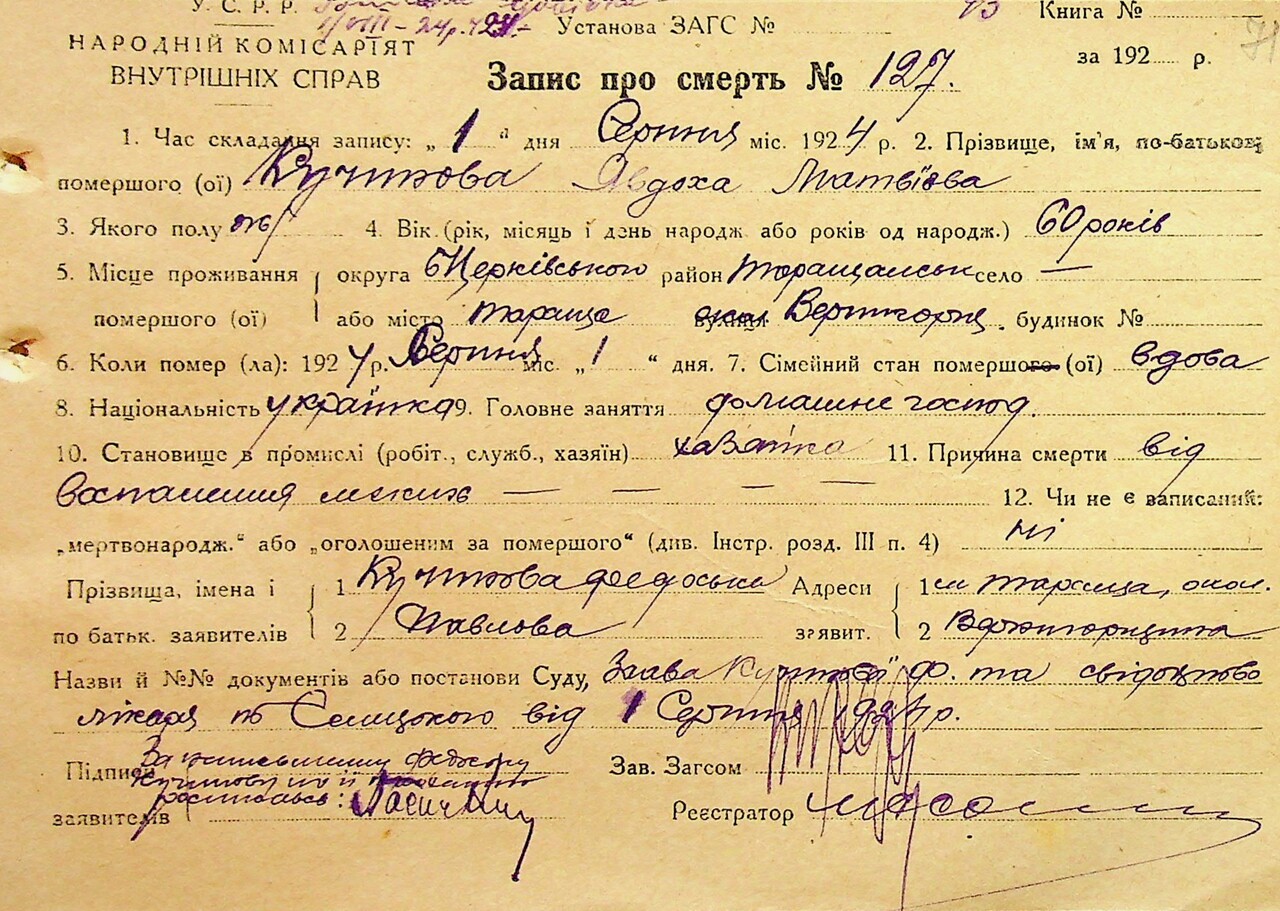 У. С. Р. Р.
1/VIII – 24р. 127 Установа ЗАГС № Книга №
НАРОДНІЙ КОМІСАРІЯТ
ВНУТРІШНІХ СПРАВ
за 192 р. 71
Запис про смерть № 127.
1. Час складання запису: „ 1 " дня Серпня міс. 1924 р. 2. Прізвище, ім'я, по-батькові
помершого (ої) Кучткова Явдоха Матвієва
3. Якого полу ж 4. Вік (рік, місяць і день народж або років од народж.) 60 років
5. Місце проживання округа БЦерківського район Таращанськ село —
помершого (ої) або місто Тараща вулиця будинок №
6. Коли помер (ла): 1924 р. Серпня міс. „ 1 " дня. 7. Сімейний стан помершого (ої) вдова
8. Національність українка 9. Головне заняття домашнє господ.
10. Становище в промислі (робіт., служб., хазяїн) хазяйка 11. Причина смерти від
воспаления легких — — — — 12. Чи не є записаний:
„мертвонародж." або „оголошеним за помершого" (див. Інстр. розд. III п. 4) ні
Прізвища, імена і 1 Федоська Адреси 1 м Тараща, окол.
по батьк. заявителів 2 Павлова заявит. 2
Назви й №№ документів або постанови Суду, Заява Ф. та свідоцтво
лікаря від 1 Серпня 1924 р.
Підписи За неписьменну Федоску
розписавсь:
заявителів
Зав. Загсом
Реєстратор